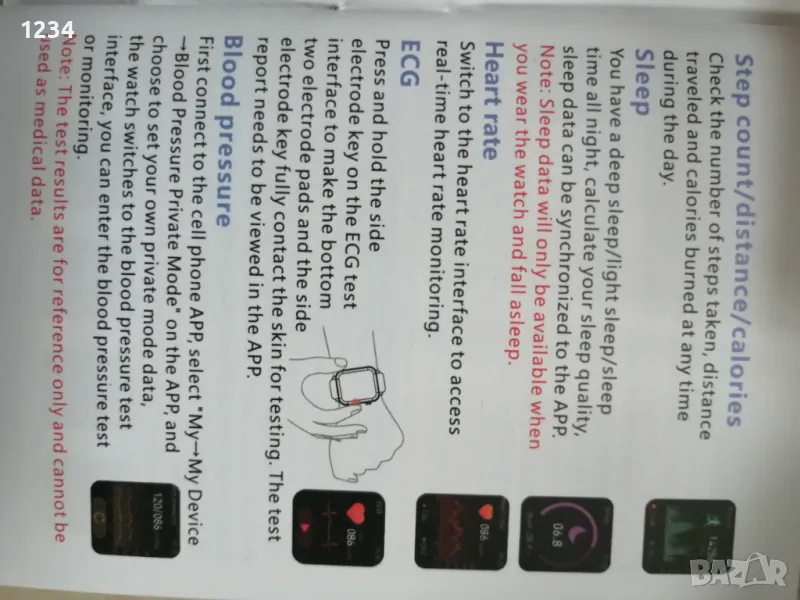 1234
Step count/distance/calories
Check the number of steps taken, distance
traveled and calories burned at any time
during the day.
Sleep
You have a deep sleep/light sleep/sleep
time all night, calculate your sleep quality,
sleep data can be synchronized to the APP.
Note: Sleep data will only be available when
you wear the watch and fall asleep.
06.8
Heart rate
Switch to the heart rate interface to access
real-time heart rate monitoring.
086
ECG
Press and hold the side
electrode key on the ECG test
interface to make the bottom
two electrode pads and the side
electrode key fully contact the skin for testing. The test
report needs to be viewed in the APP.
086
Blood pressure
First connect to the cell phone APP, select "My→My Device
→Blood Pressure Private Mode" on the APP, and
choose to set your own private mode data,
the watch switches to the blood pressure test
interface, you can enter the blood pressure test
or monitoring.
120/086
Note: The test results are for reference only and cannot be
used as medical data.
BAZAR